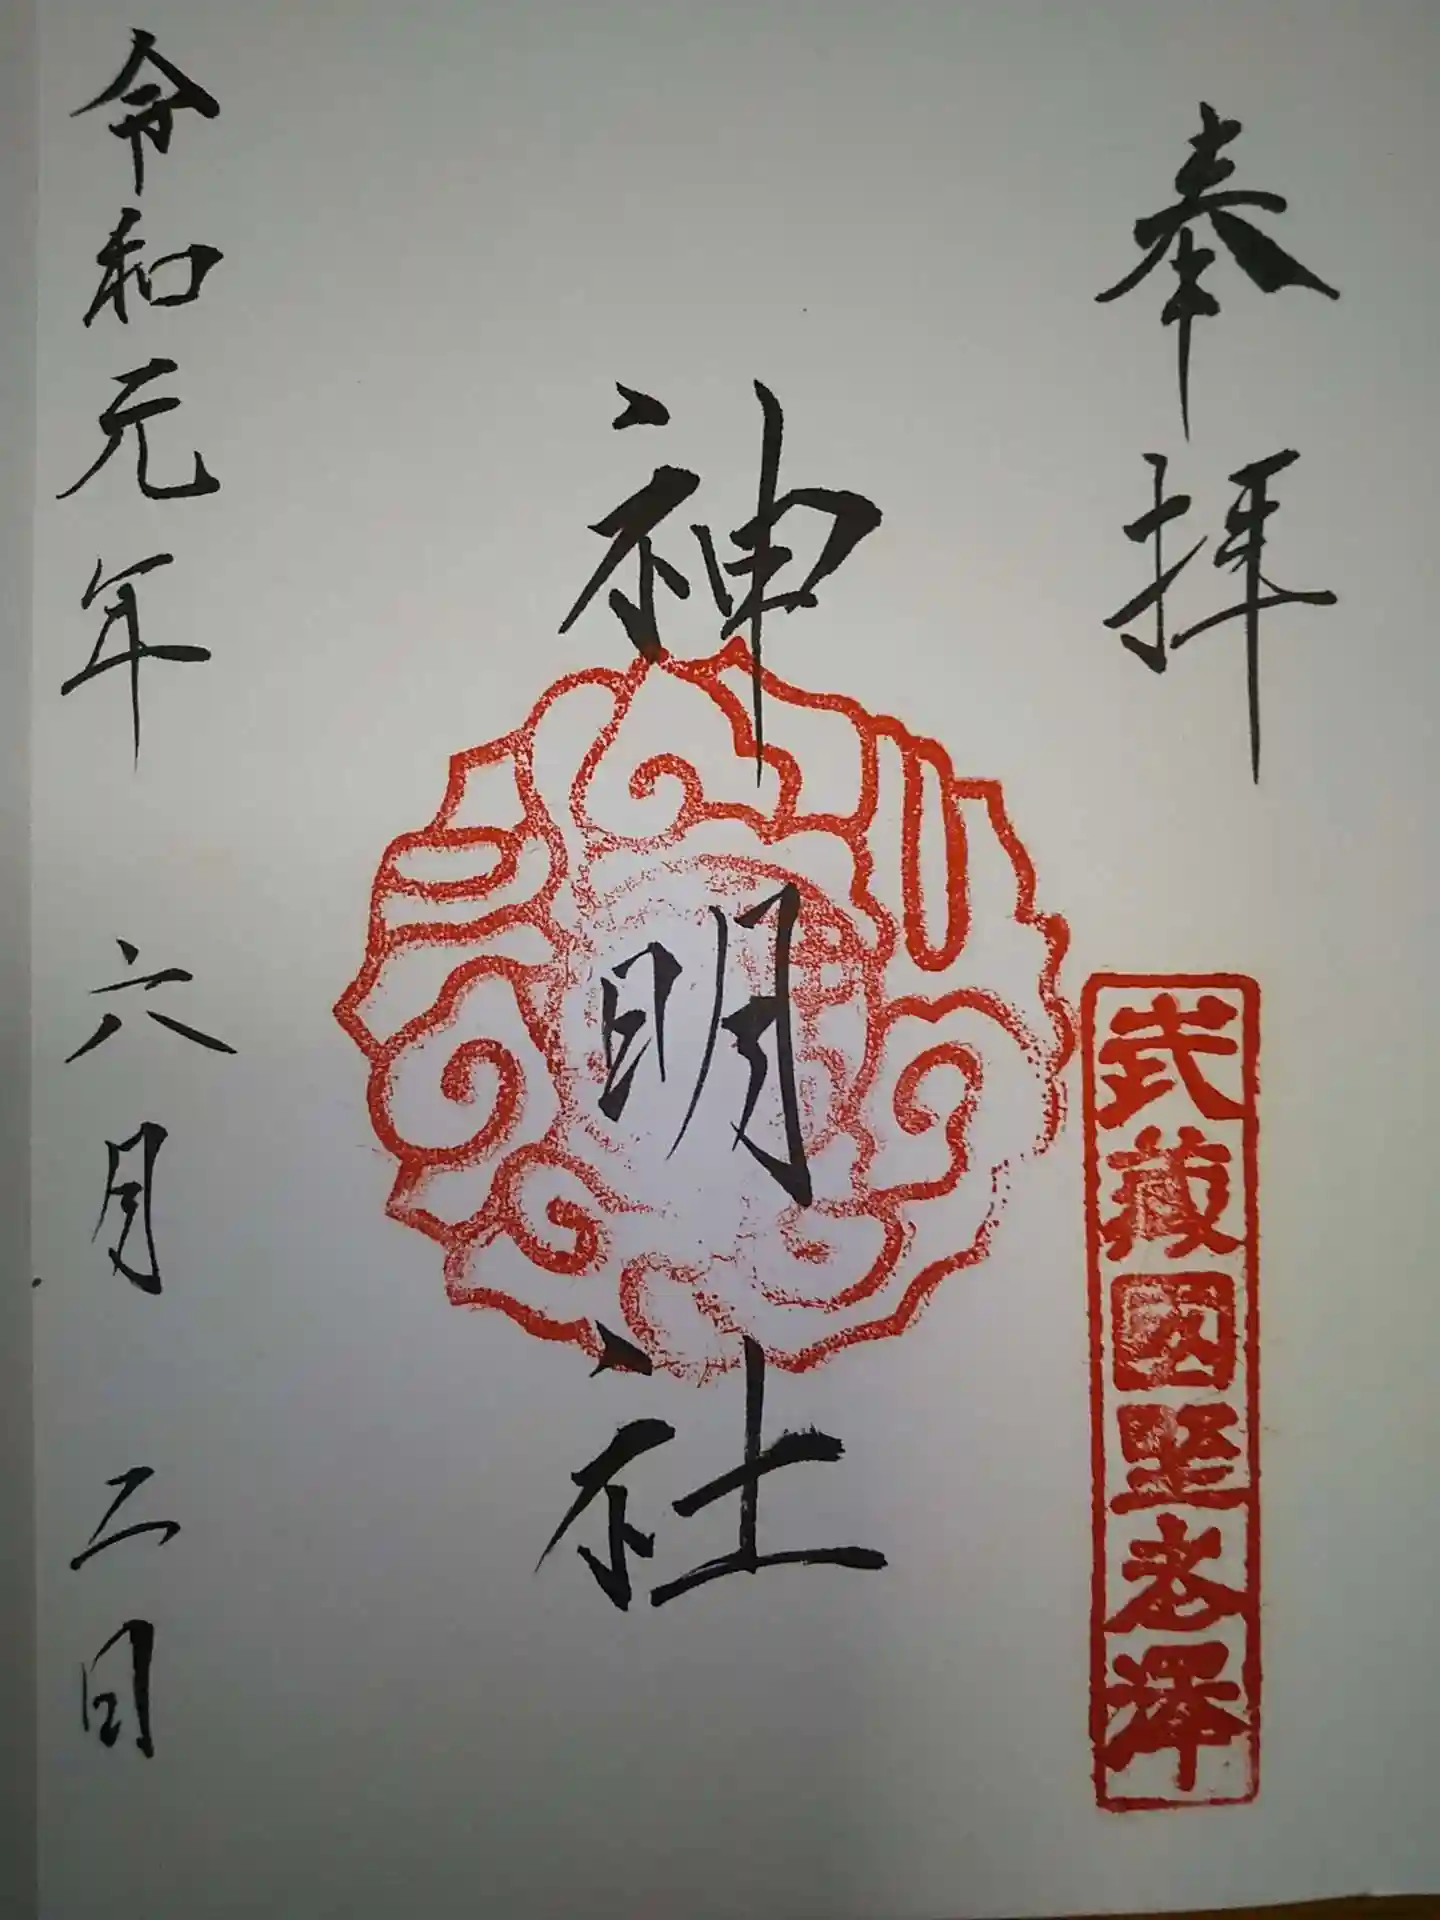 奉拝
武藏國野老澤
神明社
令和元年六月二日